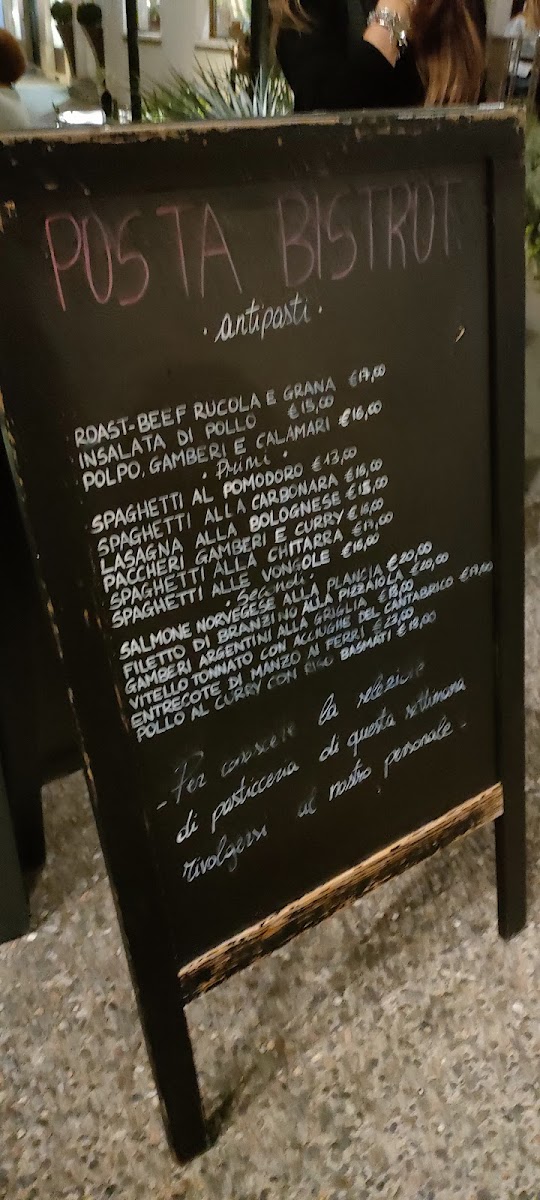 POSTA BISTROT
· antipasti ·
ROAST-BEEF RUCOLA E GRANA €17,00
INSALATA DI POLLO €15,00
POLPO, GAMBERI E CALAMARI €16,00
· Primi ·
SPAGHETTI AL POMODORO €13,00
SPAGHETTI ALLA CARBONARA €16,00
LASAGNA ALLA BOLOGNESE €15,00
PACCHERI GAMBERI E CURRY €16,00
SPAGHETTI ALLA CHITARRA €17,00
SPAGHETTI ALLE VONGOLE €16,00
· Secondi ·
SALMONE NORVEGESE ALLA PLANCIA €20,00
FILETTO DI BRANZINO ALLA PIZZAIOLA €20,00
GAMBERI ARGENTINI ALLA GRIGLIA €18,00
VITELLO TONNATO CON ACCIUGHE DEL CANTABRICO €17,00
ENTRECOTE DI MANZO AI FERRI €23,00
POLLO AL CURRY CON RISO BASMATI €18,00
- Per conoscere la selezione
di pasticceria di questa settimana
rivolgersi al nostro personale -